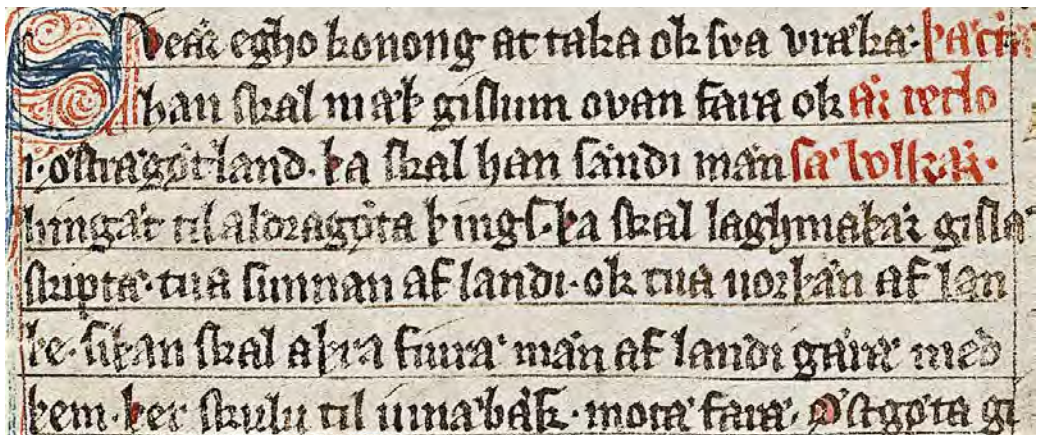 Svear egho konong at taka ok sva vrækæ. þættæ
han skal mæþ gislum ovan fara ok ær retlo
i. ostrægøtland. þa skal han sændi mæn sæ bolkær.
hingæt til aldragøta þings. þa skal laghmaþær gislæ
skiptæ. tua sunnan af landi. ok tua norþæn af lan
de. siþan skal aþra fiura mæn af landi gæræ med
þem. þer skulu til iunæbæk. motæ faræ. Østgøta gi